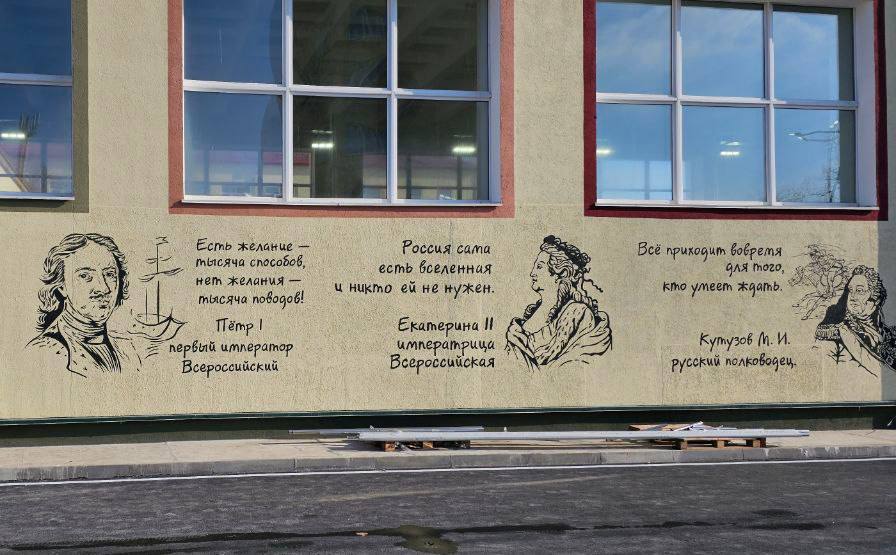 Есть желание —
тысяча способов,
нет желания —
тысяча поводов!
Пётр I
первый император
Всероссийский
Россия сама
есть вселенная
и никто ей не нужен.
Екатерина II
императрица
Всероссийская
Всё приходит вовремя
для того,
кто умеет ждать.
Кутузов М. И.
русский полководец.